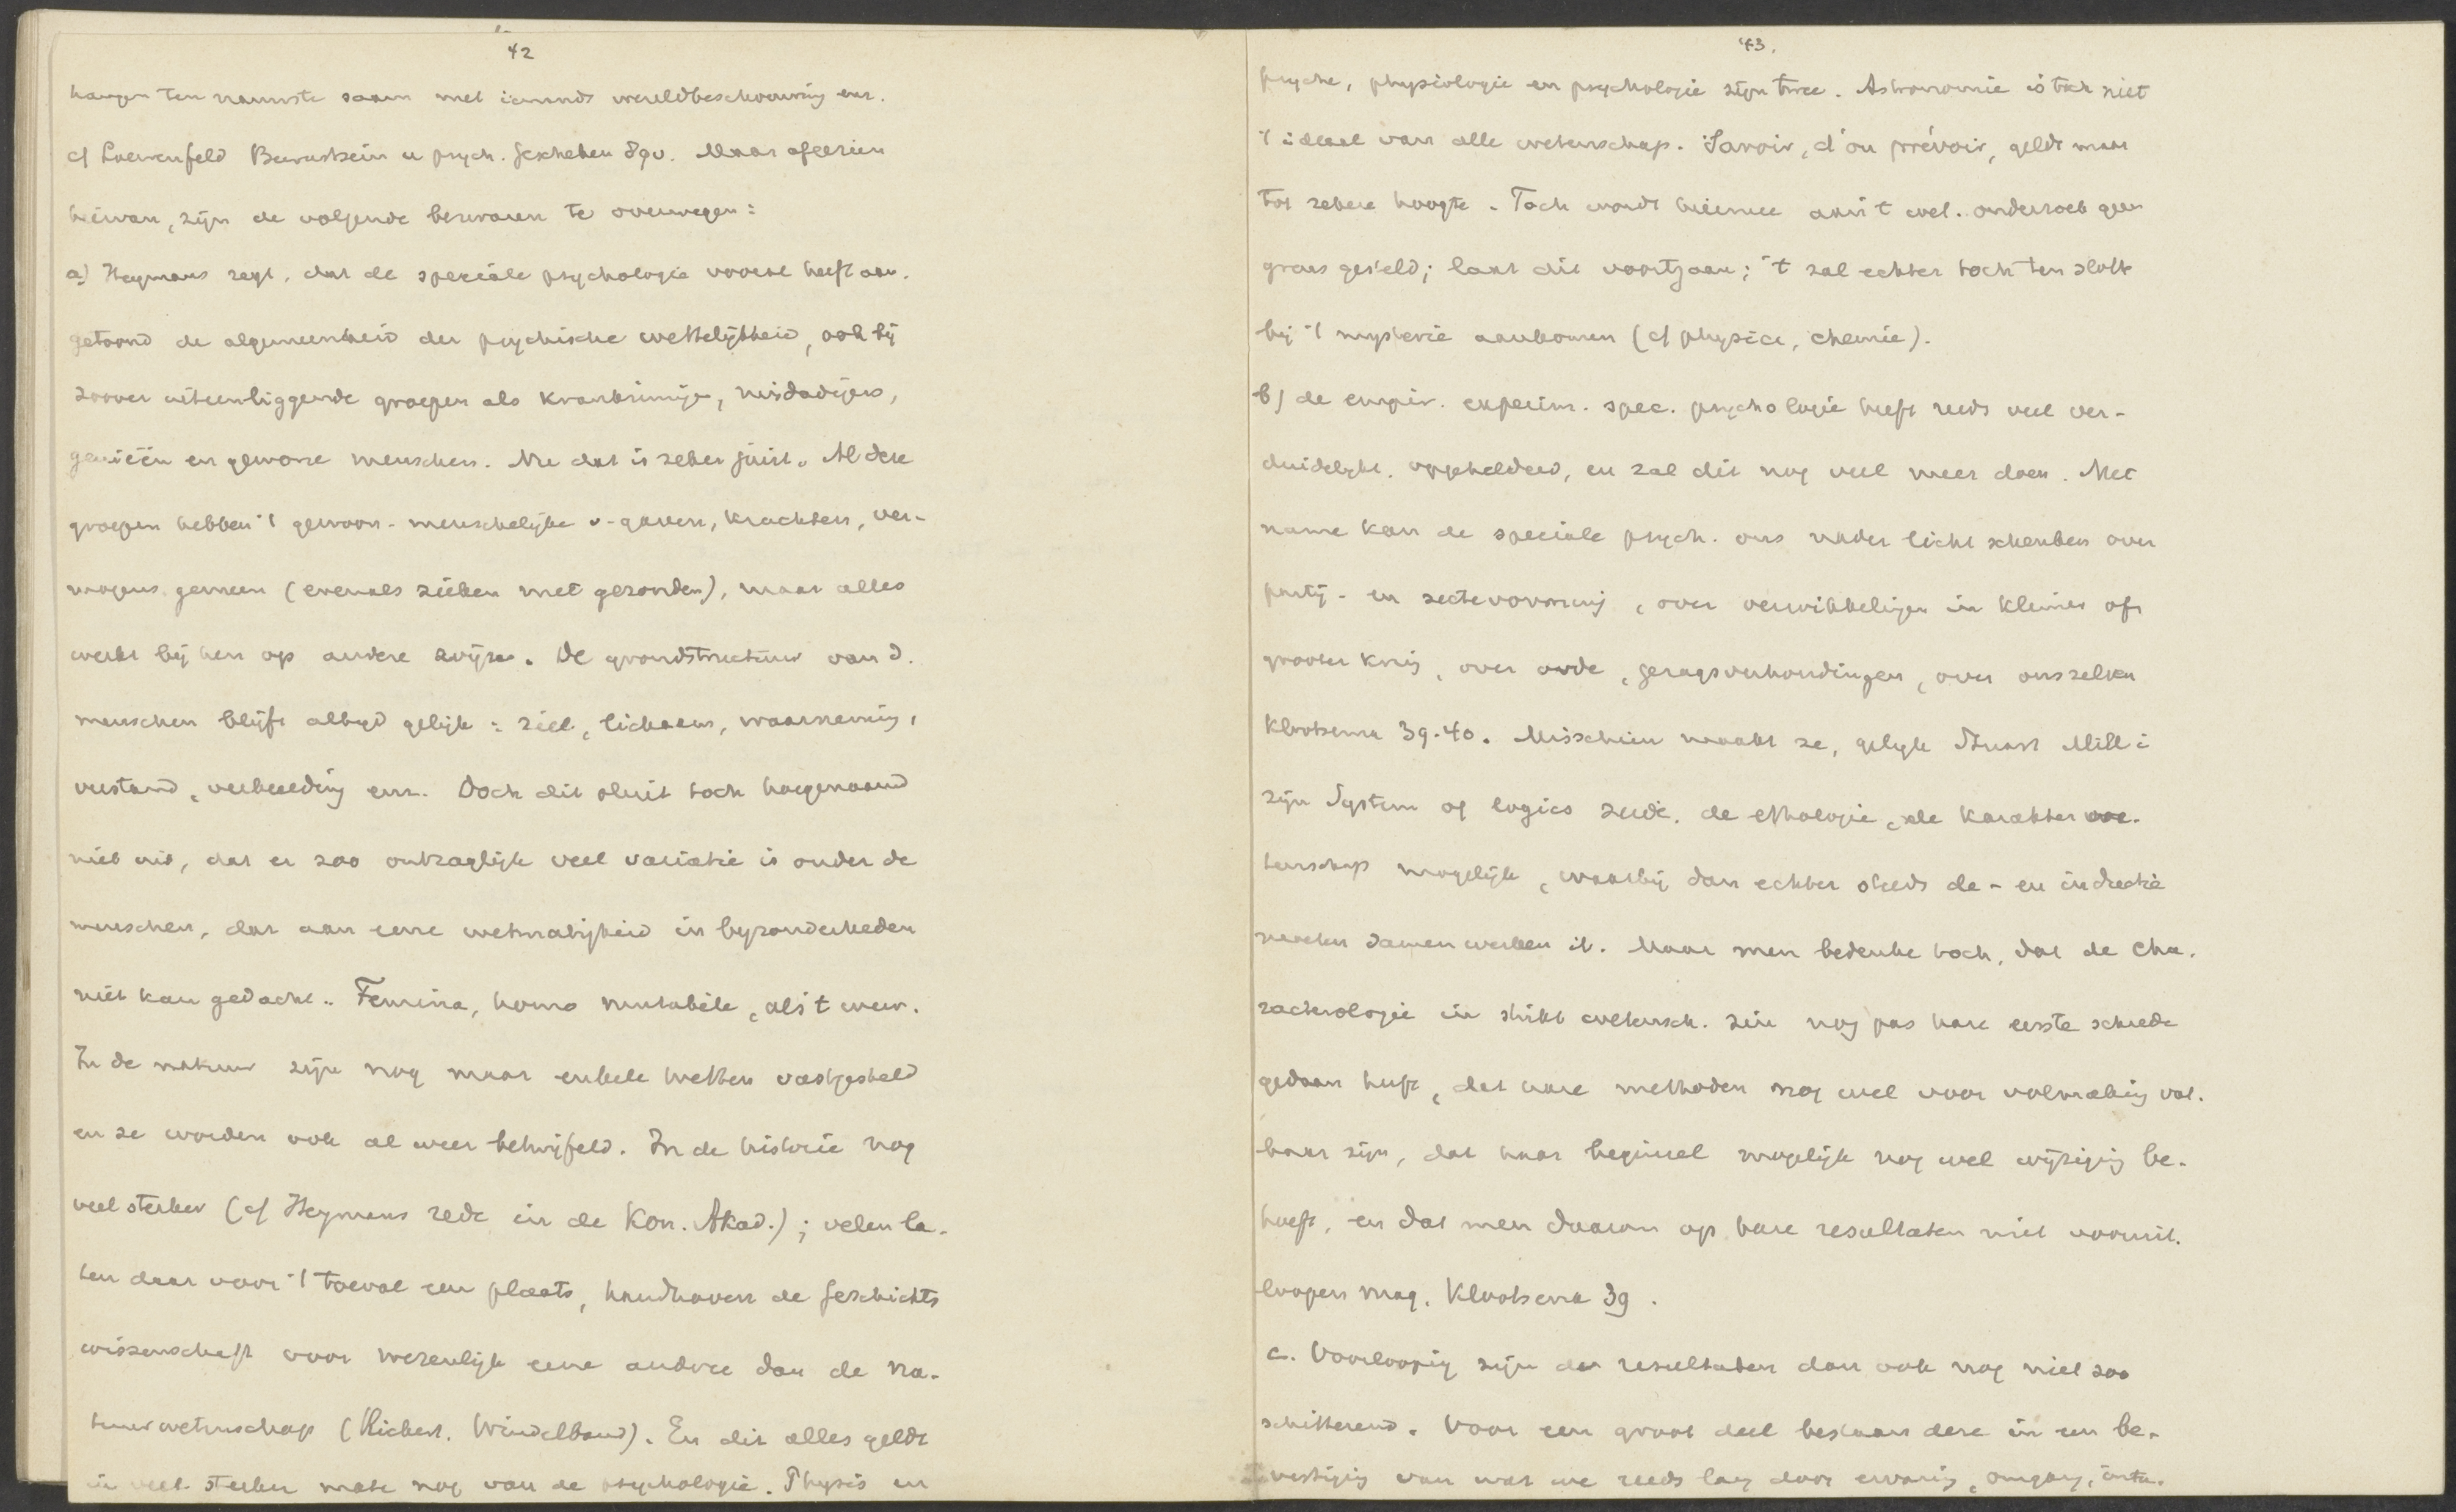 42
hangen ten nauwste saam met iemands wereldbeschouwing enz.
cf Loewenfeld Bewusstsein u psych. Geschehen 89v. Maar afgezien
hiervan, zijn de volgende bezwaren te overwegen:
a) Heymans zegt, dat de speciale psychologie vooral heeft aan-
getoond de algemeenheid der psychische wettelijkheid, ook bij
zoover uiteenliggende groepen als krankzinnige, misdadigers,
genieën en gewone menschen. Nu dat is zeker juist. Al deze
groepen hebben 't gewoon-menschelijke v. gaven, krachten, ver-
mogens gemeen (evenals zieken met gezonden), maar alles
werkt bij hen op andere wijze. De grondstructuur van d.
menschen blijft altijd gelijk: ziel, lichaam, waarneming,
verstand, verbeelding enz. Doch dit sluit toch hoegenaamd
niet uit, dat er zoo ontzaglijk veel variatie is onder de
menschen, dat aan eene wetmatigheid in byzonderheden
niet kan gedacht.. Femina, homo mutabile, als 't weer.
In de natuur zijn nog maar enkele wetten vastgesteld
en ze worden ook al weer betwijfeld. In de historie nog
veel sterker (cf Heymans rede in de Kon. Akad.); velen la-
ten daar voor 't toeval een plaats, handhaven de Geschichts
wissenschaft voor wezenlijk eene andere dan de na-
tuurwetenschap (Rickert. Windelband). En dit alles geldt
in veel sterker mate nog van de psychologie. Physis en
43.
psyche, physiologie en psychologie zijn twee. Astronomie is toch niet
't ideaal van alle wetenschap. Savoir, d'ou prévoir, geldt maar
tot zekere hoogte. Toch wordt hiermee aan 't wet. onderzoek geen
grens gesteld; laat dit voortgaan; 't zal echter toch ten slotte
bij 't mysterie aankomen (cf physica, chemie).
b) de empir. experim. spec. psychologie heeft reeds veel ver-
duidelykt. opgehelderd, en zal dit nog veel meer doen. Met
name kan de speciale psych. ons nader licht schenken over
partij- en sectevorming, over verwikkelingen in kleiner of
grooter kring, over orde, gezagsverhoudingen, over ons zelven
Klootsema 39.40. Misschien maakt ze, gelijk Stuart Mill i
zijn System of logics zeide, de ethologie, de karakter we-
tenschap mogelijk, waarbij dan echter steeds de- en inductie
moeten samen werken it. Maar men bedenke toch, dat de cha-
racterologie in strikt wetensch. zin nog pas hare eerste schrede
gedaan heeft, dat hare methoden nog wel voor volmaking vat-
baar zijn, dat haar beginsel mogelijk nog wel wijziging be-
hoeft, en dat men daarom op hare resultaten niet vooruit-
loopen mag. Klootsema 39.
c. Voorloopig zijn de resultaten dan ook nog niet zoo
schitterend. Voor een groot deel bestaan deze in een be-
vestiging van wat we reeds lang door ervaring, omgang, intu-